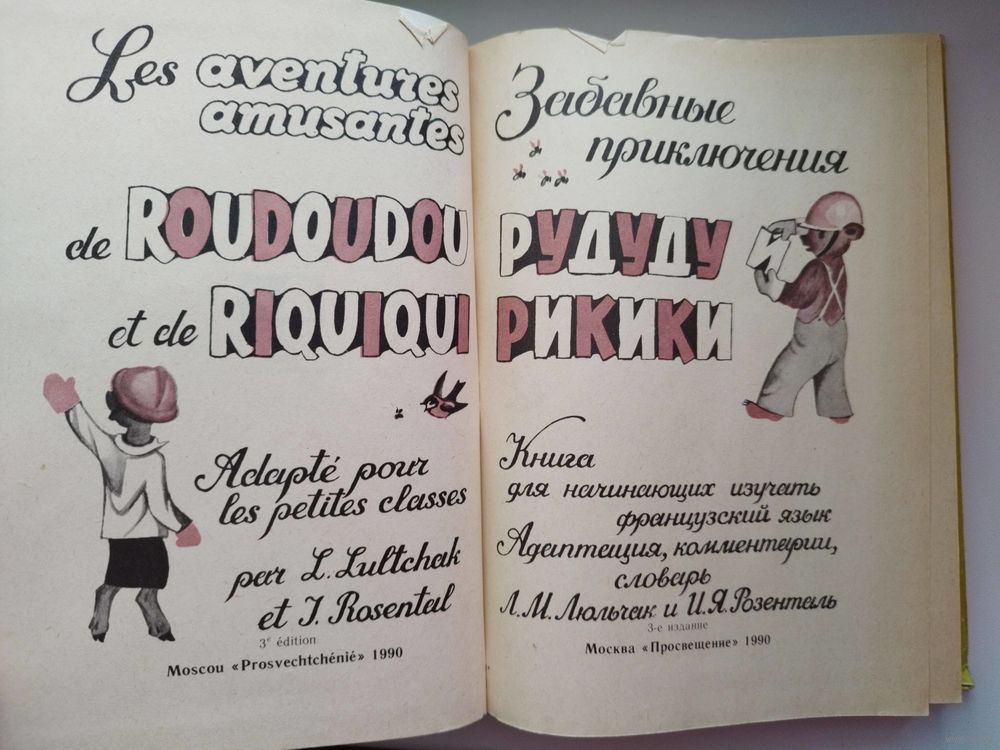 Les aventures
amusantes
de ROUDOUDOU
et de RIQUIQUI
Adapté pour
les petites classes
par L. Lultchak
et J. Rosental
3e édition
Moscou «Prosvechtchénié» 1990
Забавные
приключения
РУДУДУ И
РИКИКИ
Книга
для начинающих изучать
французский язык
Адаптация, комментарии,
словарь
Л.М. Люльчак и И.Я. Розенталь
3-е издание
Москва «Просвещение» 1990